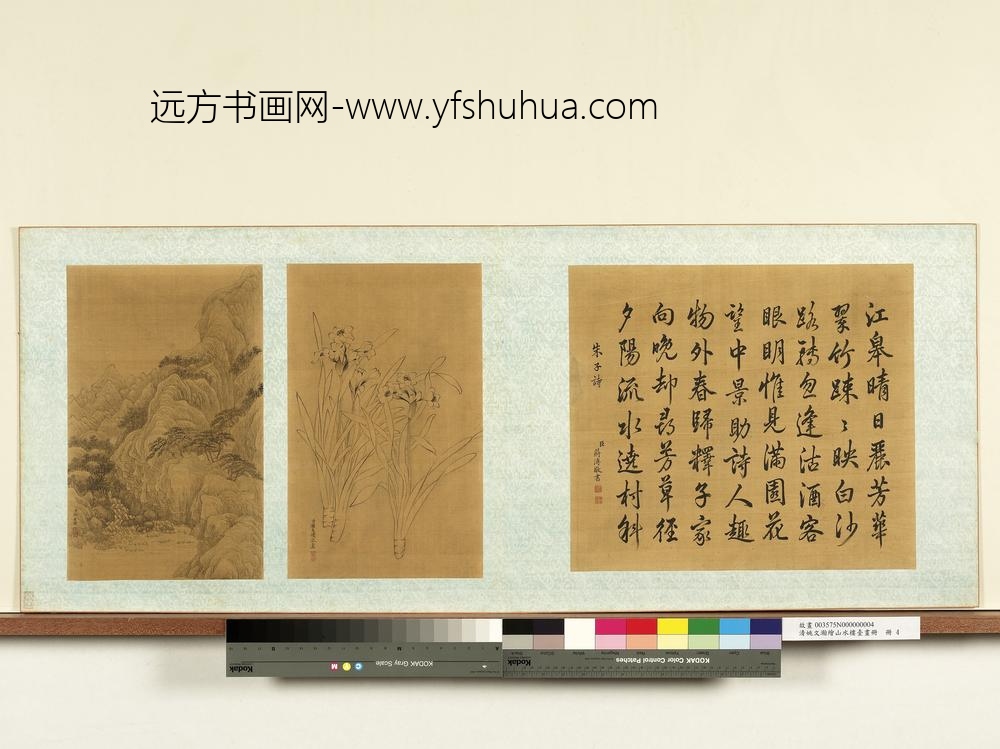 远方书画网-www.yfshuhua.com
江皋晴日麗芳華
翠竹踈〻映白沙
路轉忽逢沽酒客
眼明惟見滿園花
望中景助詩人趣
物外春歸釋子家
向晚却尋芳草徑
夕陽流水遶村斜
朱子詩
臣蔣溥敬書
故畫 003575N000000004
清姚文瀚繪山水樓臺畫冊 冊 4
Kodak
KODAK Gray Scale
C
Y
M
Kodak
KODAK Color Control Patches